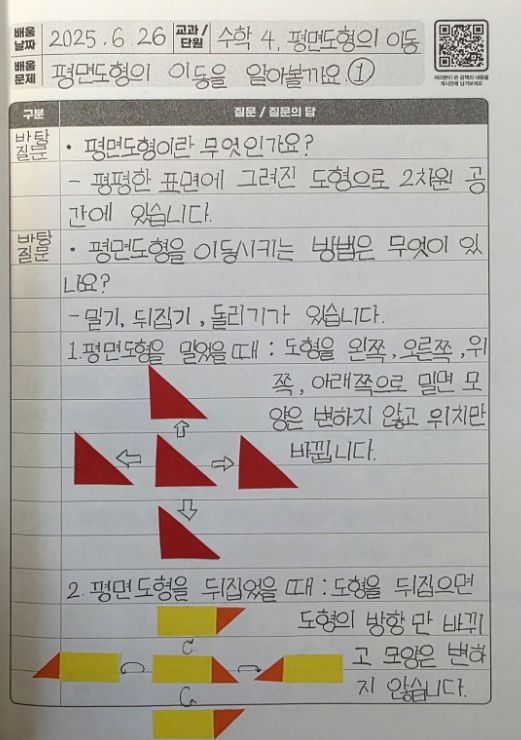 배움 날짜 2025. 6. 26 교과/단원 수학 4. 평면도형의 이동
배움 문제 평면도형의 이동을 알아볼까요 ①
여러분이 쓴 공책의 내용을
게시판에 남겨보세요
구분 질문 / 질문의 답
바탕 질문 • 평면도형이란 무엇인가요?
- 평평한 표면에 그려진 도형으로 2차원 공
간에 있습니다.
바탕 질문 • 평면도형을 이동시키는 방법은 무엇이 있
나요?
- 밀기, 뒤집기, 돌리기가 있습니다.
1. 평면도형을 밀었을 때 : 도형을 왼쪽, 오른쪽, 위
쪽, 아래쪽으로 밀면 모
양은 변하지 않고 위치만
바뀝니다.
2. 평면도형을 뒤집었을 때 : 도형을 뒤집으면
도형의 방향만 바뀌
고 모양은 변하
지 않습니다.